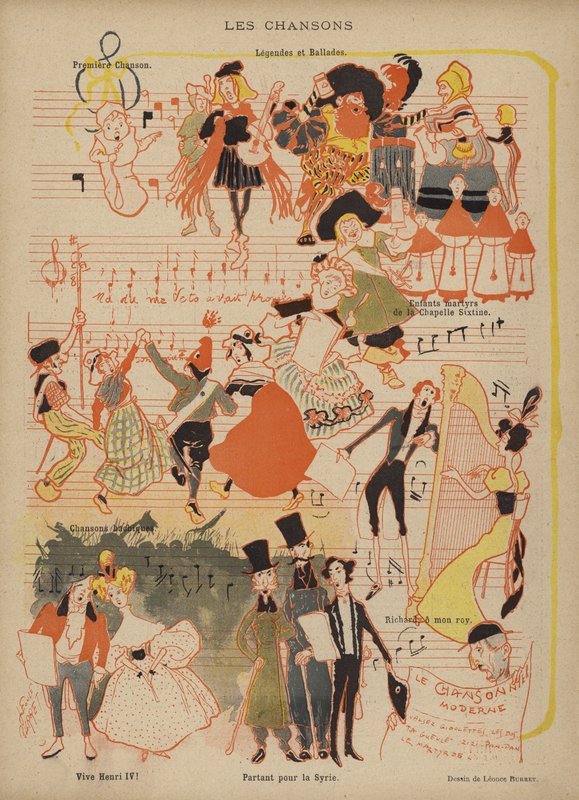 LES CHANSONS
Légendes et Ballades.
Première Chanson.
Enfants martyrs
de la Chapelle Sixtine.
Chansons bachiques.
Richard, ô mon roy.
LE CHANSONNIER
MODERNE
VALSEZ GIGOLETTES, LES
TA GUEULE ZIZI-PAN-PAN
LE MARTYR DE
Vive Henri IV!
Partant pour la Syrie.
Dessin de Léonce BURRET.